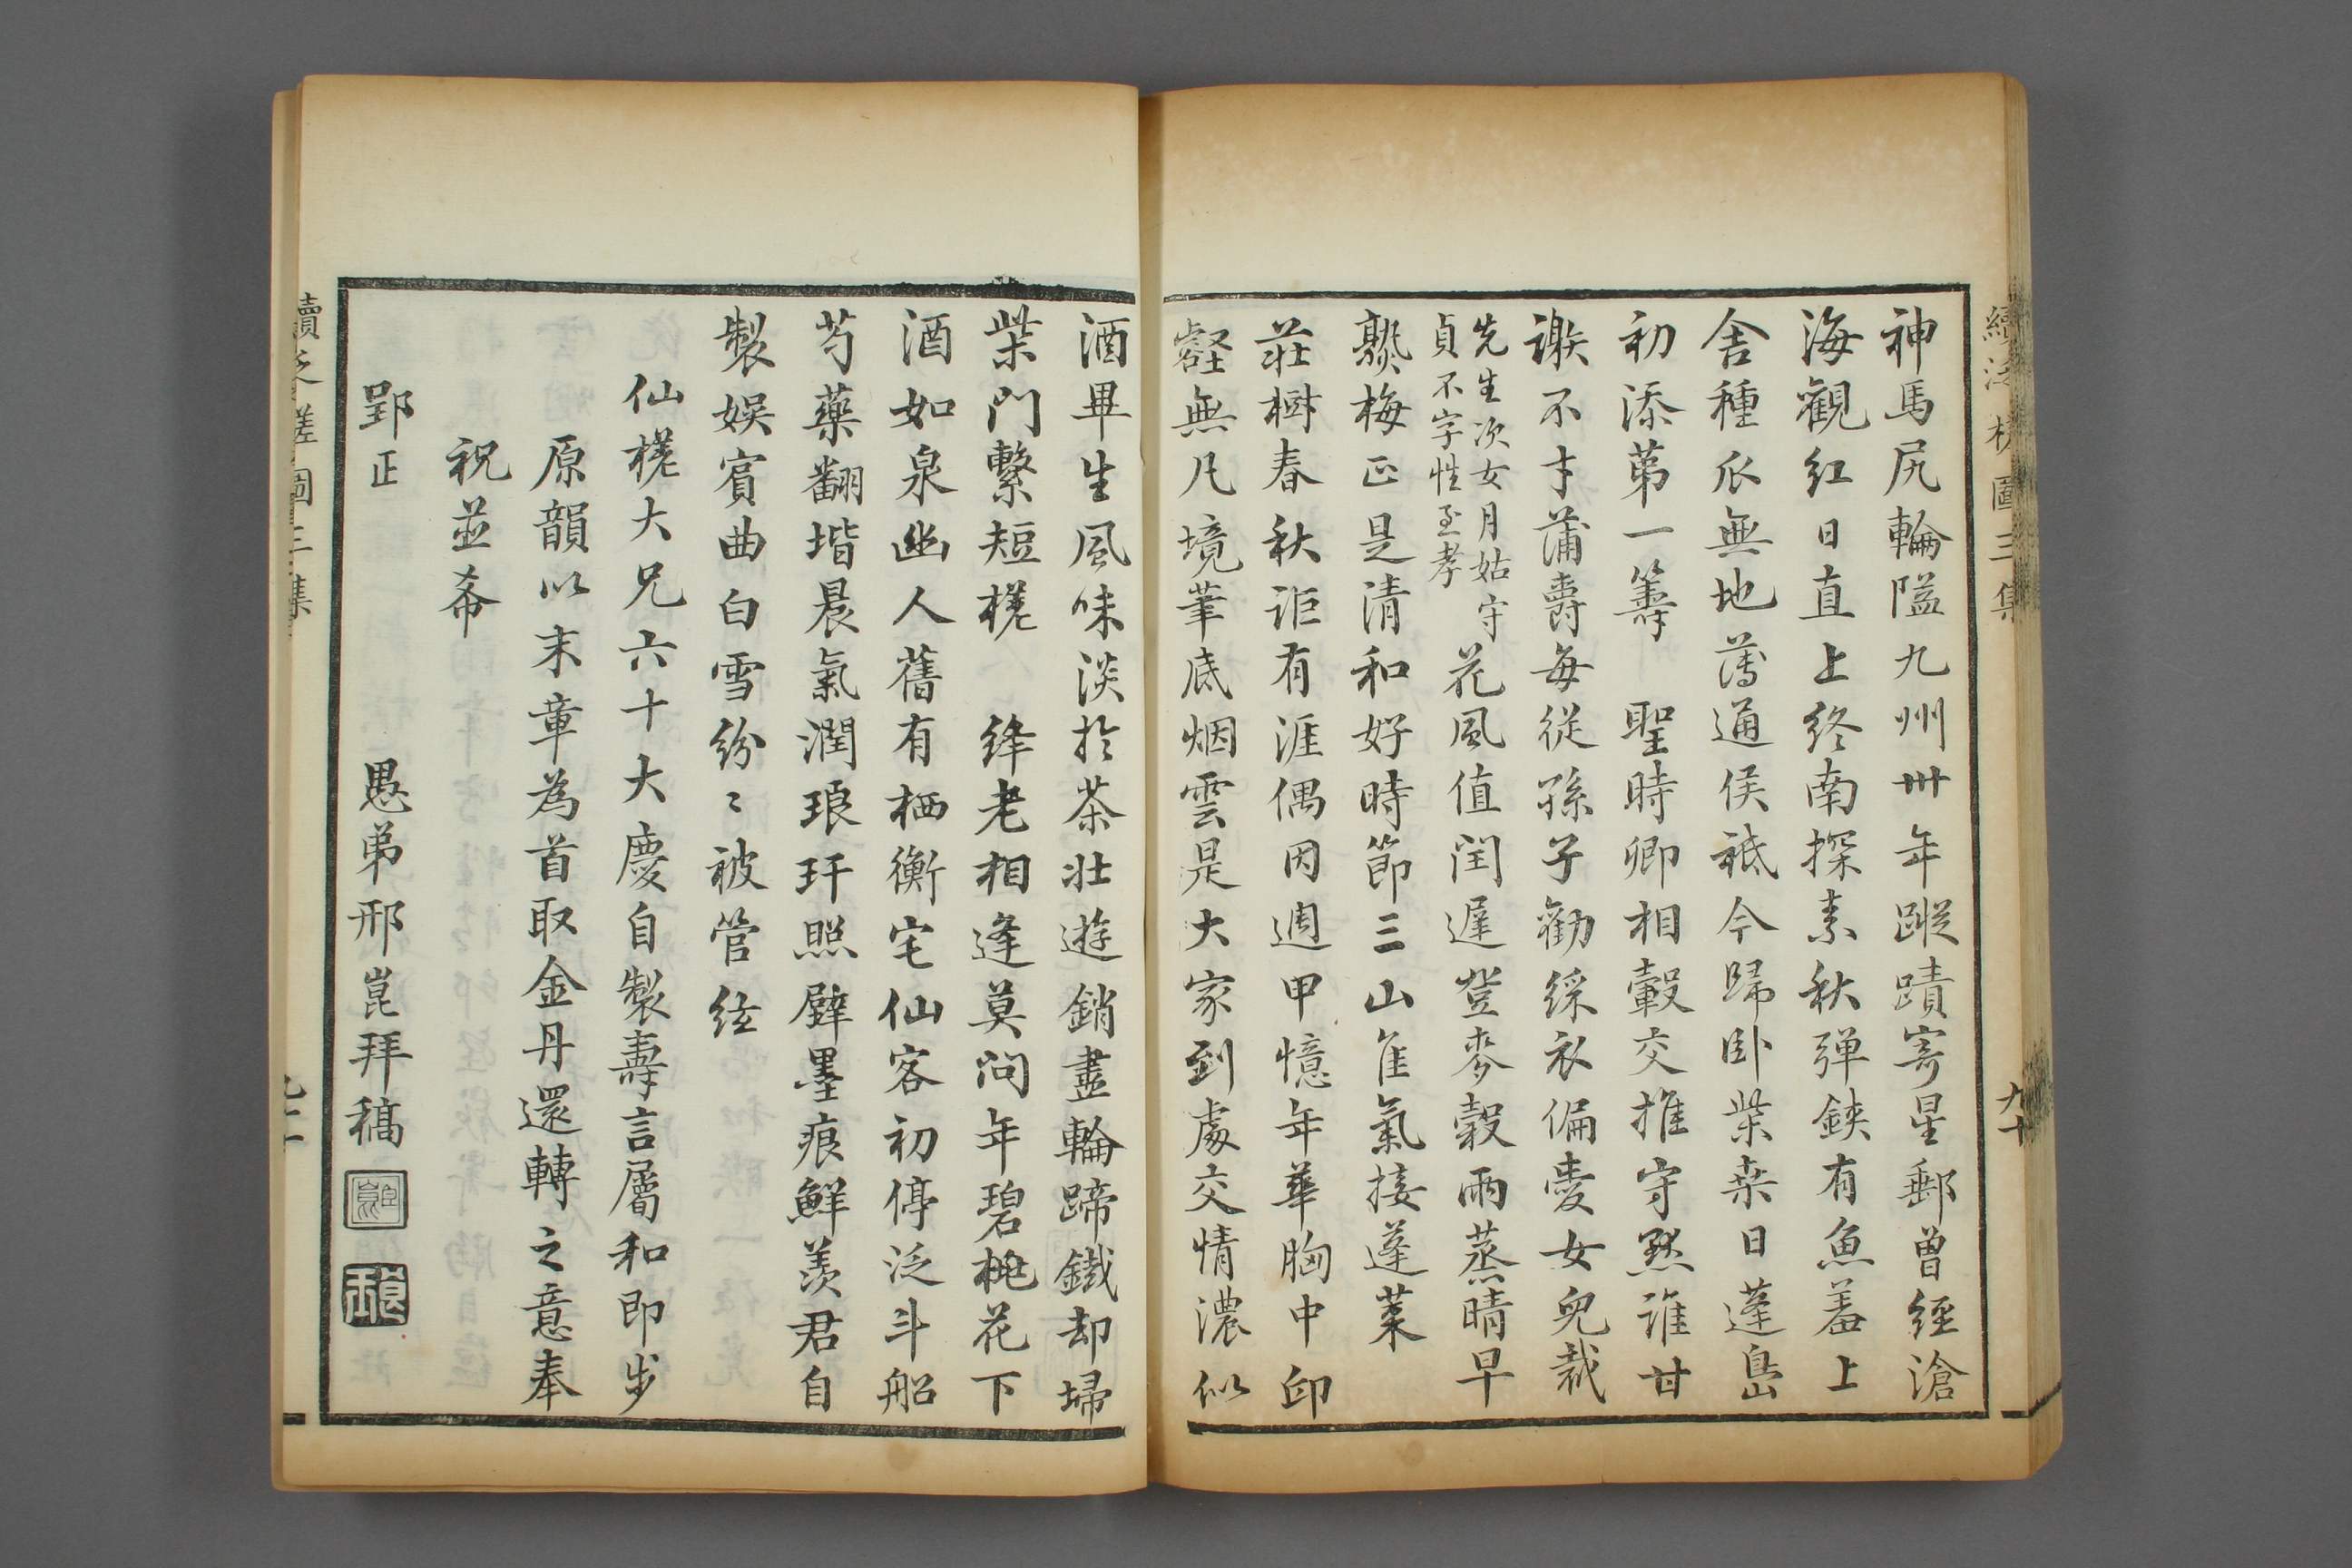 神馬尻輪隘九州卅年蹤蹟寄星郵曾經滄
海觀紅日直上終南探素秋弾鋏有魚羞上
舍種瓜無地薄通侯祗今歸卧柴桑日蓬島
初添第一籌　聖時卿相轂交推守黙誰甘
謝不才蒲壽每從孫子勸綵衣偏愛女兒裁
先生次女月姑守
貞不字性至孝
花風值閏遲登麥穀雨蒸晴早
熟梅正是清和好時節三山隹氣接蓬萊
莊樹春秋詎有涯偶因週甲憶年華胸中邱
壑無凡境筆底烟雲是大家到處交情濃似
酒畢生風味淡於茶壯遊銷盡輪蹄鐵却埽
柴門繫短槎　絳老相逢莫問年碧桃花下
酒如泉幽人舊有栖衡宅仙客初停泛斗船
芍藥翻堦晨氣潤琅玕照壁墨痕鮮羨君自
製娛賓曲白雪紛〻被管絃
仙槎大兄六十大慶自製壽言屬和即步
原韻以末章為首取金丹還轉之意奉
祝並希
郢正
愚弟邢崑拜稿
續泛槎圖三集
九十
續泛槎圖三集